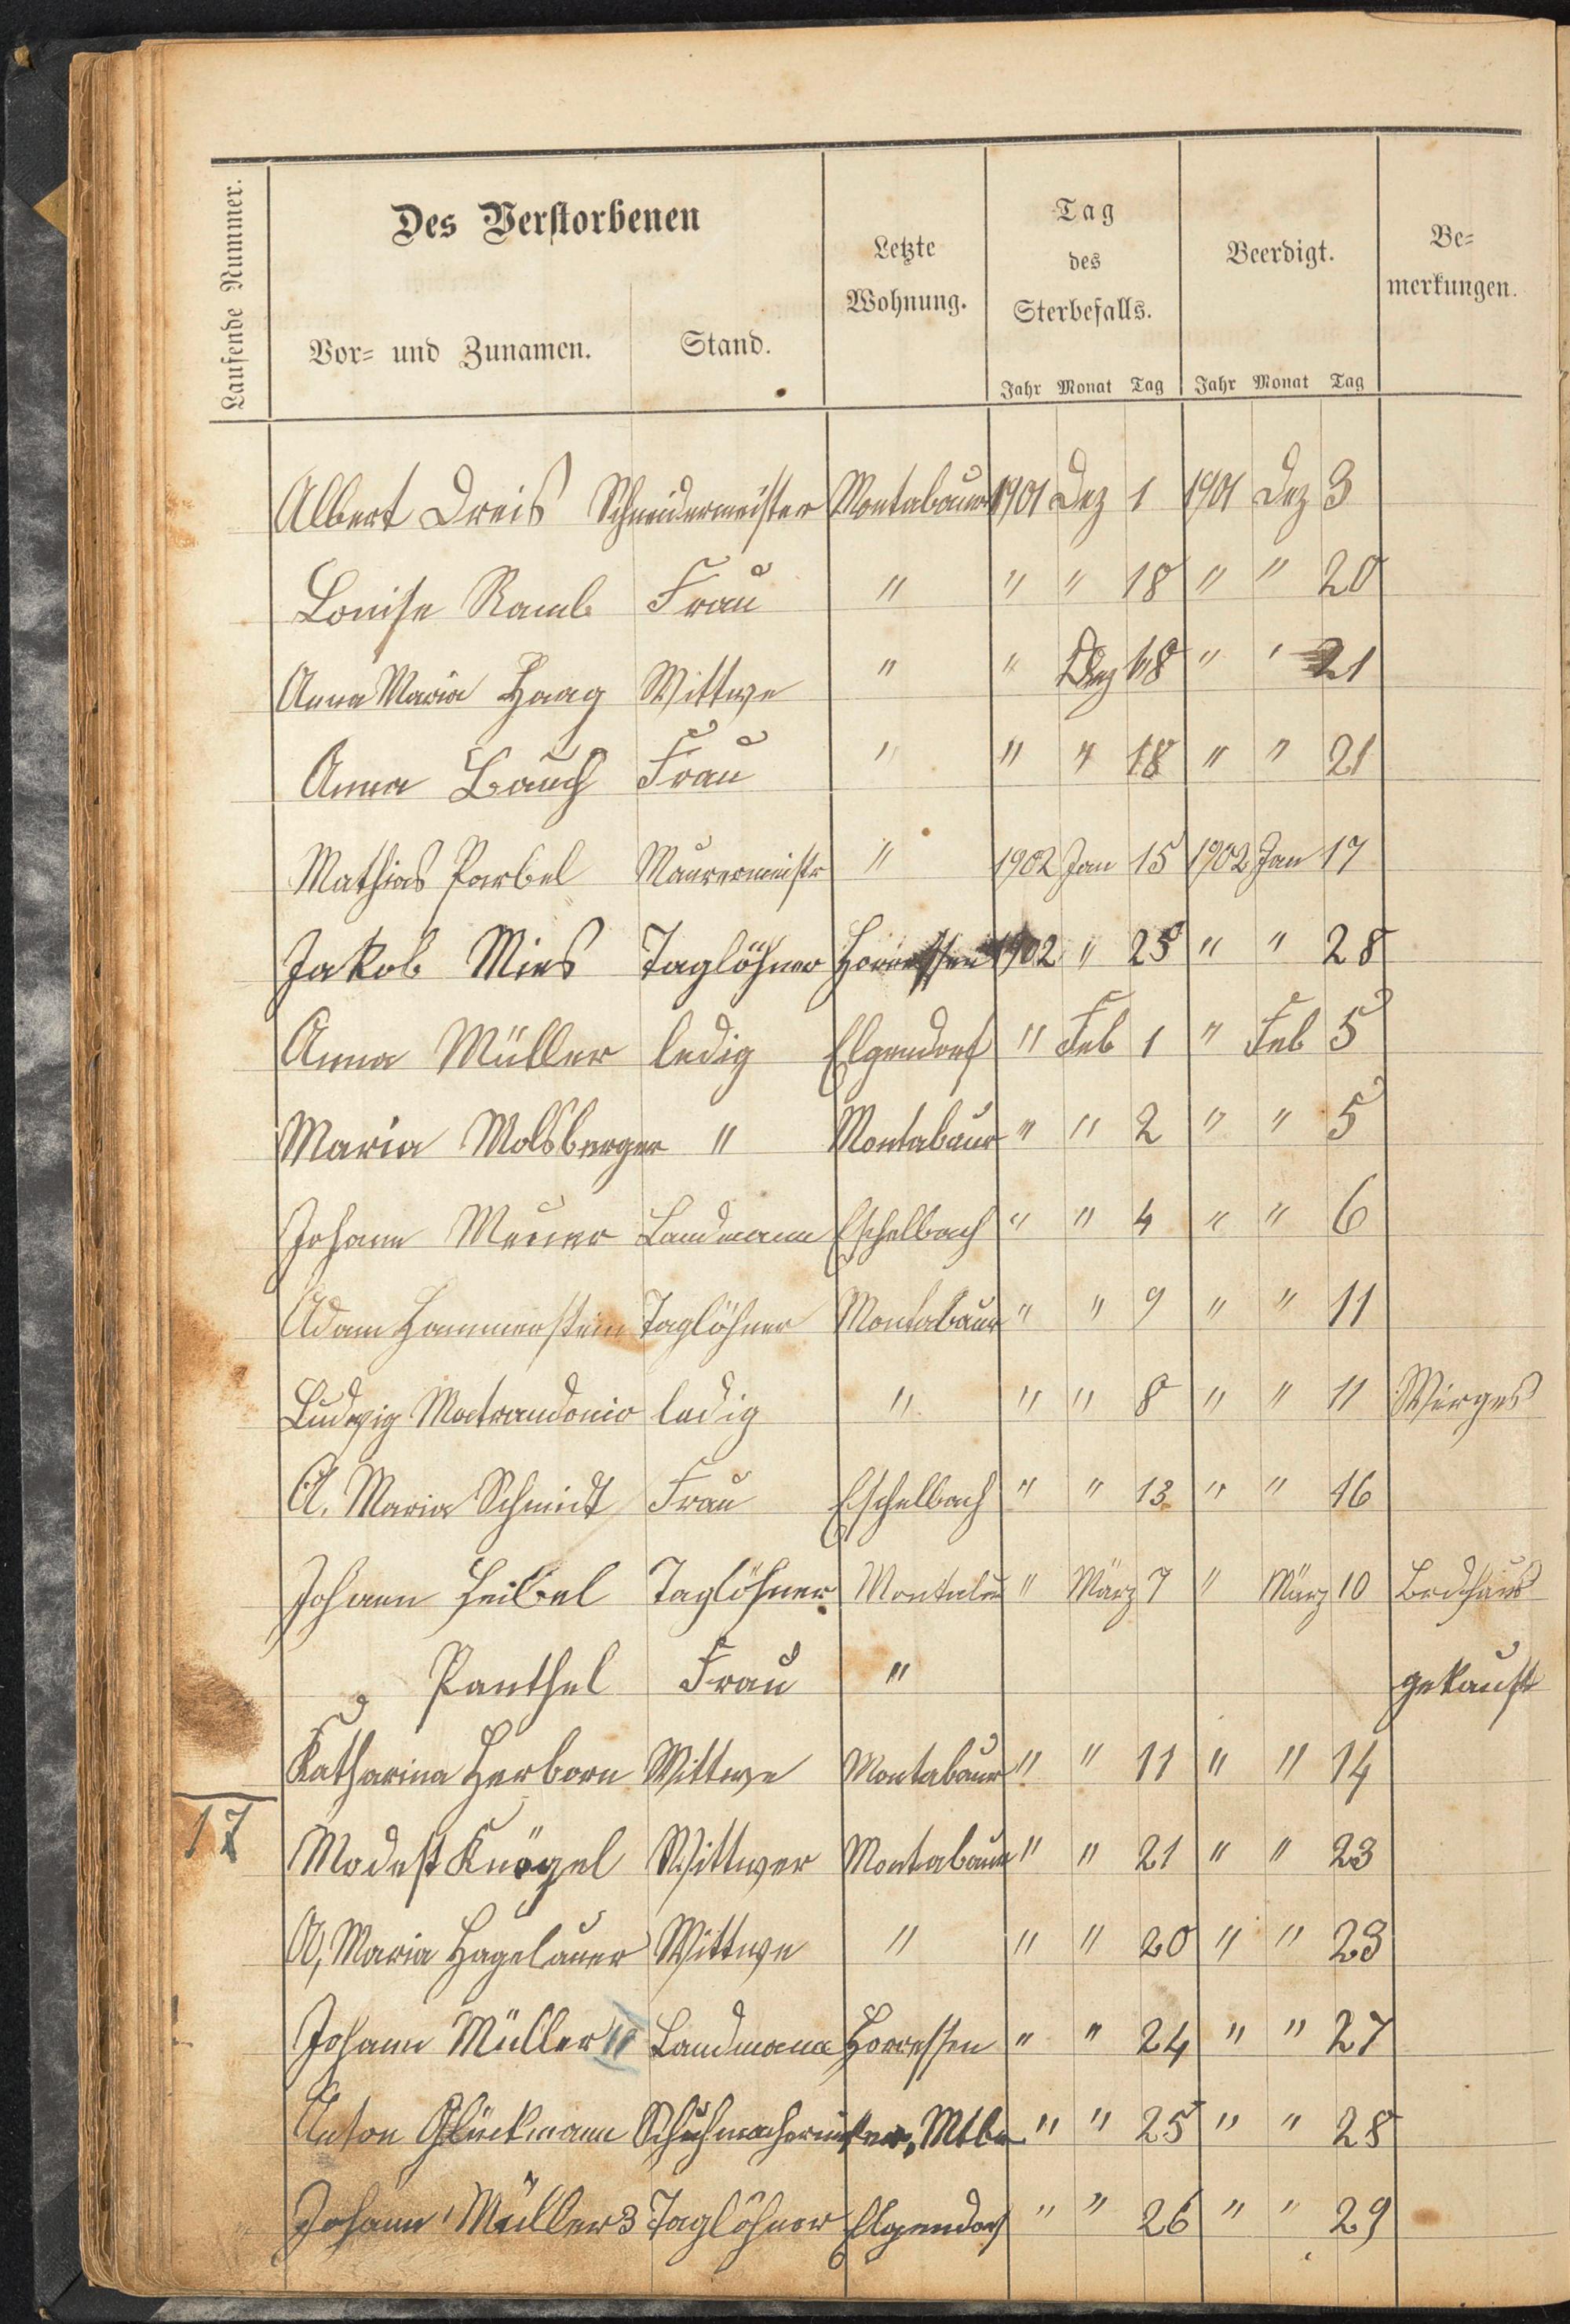 Laufende Nummer.
Des Verstorbenen
Vor- und Zunamen.
Stand.
Letzte
Wohnung.
Tag
des
Sterbefalls.
Jahr Monat Tag
Beerdigt.
Jahr Monat Tag
Be-
merkungen.
Albert Dreis Schneidermeister Montabaur 1901 Dez 1 1901 Dez 3
Louise Raml Frau " " " 18 " " 20
Anna Maria Haag Wittwe " " Dez 18 " " 21
Anna Bauch Frau " " " 18 " " 21
Mathias Parbel Maurermeistr " 1902 Jan 15 1902 Jan 17
Jakob Mies Taglöhner Horressen 1902 " 25 " " 28
Anna Müller ledig Elgendorf " Feb 1 " Feb 5
Maria Molsberger " Montabaur " " 2 " " 5
Johann Meurer Landmann Eschelbach " " 4 " " 6
Adam Hammerstein Taglöhner Montabaur " " 9 " " 11
Ludwig Matrandonio ledig " " " 8 " " 11 Wirges
A. Maria Schmidt Frau Eschelbach " " 13 " " 16
Johann Heibel Taglöhner " März 7 " März 10
Panthel Frau " gekauft
Katharina Herborn Wittwe Montabaur " " 11 " " 14
17
Modest Knögel Wittwer Montabaur " " 21 " " 23
A, Maria Hagelauer Wittwe " " " 20 " " 23
Johann Müller II Landmann Horressen " " 24 " " 27
Anton Glückmann Mtbr " " 25 " " 28
Johann Müller 3 Taglöhner Elgendorf " " 26 " " 29